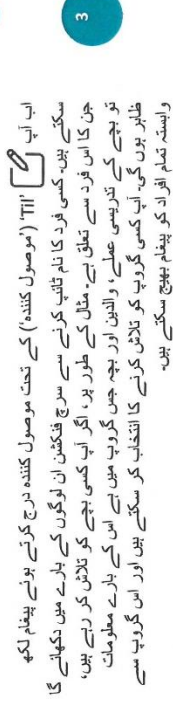 3
اب آپ 'Til' ('موصول کنندہ') کے تحت موصول کنندہ درج کرتے ہوئے پیغام لکھ
سکتے ہیں۔ کسی فرد کا نام ٹائپ کرنے سے سرچ فنکشن ان لوگوں کے بارے میں دکھائے گا
جن کا اس فرد سے تعلق ہے۔ مثال کے طور پر، اگر آپ کسی بچے کو تلاش کر رہے ہیں،
تو بچے کے تدریسی عملے، والدین اور بچہ جس گروپ میں ہے اس کے بارے معلومات
ظاہر ہوں گی۔ آپ کسی گروپ کو تلاش کرنے کا انتخاب کر سکتے ہیں اور اس گروپ سے
وابستہ تمام افراد کو پیغام بھیج سکتے ہیں۔